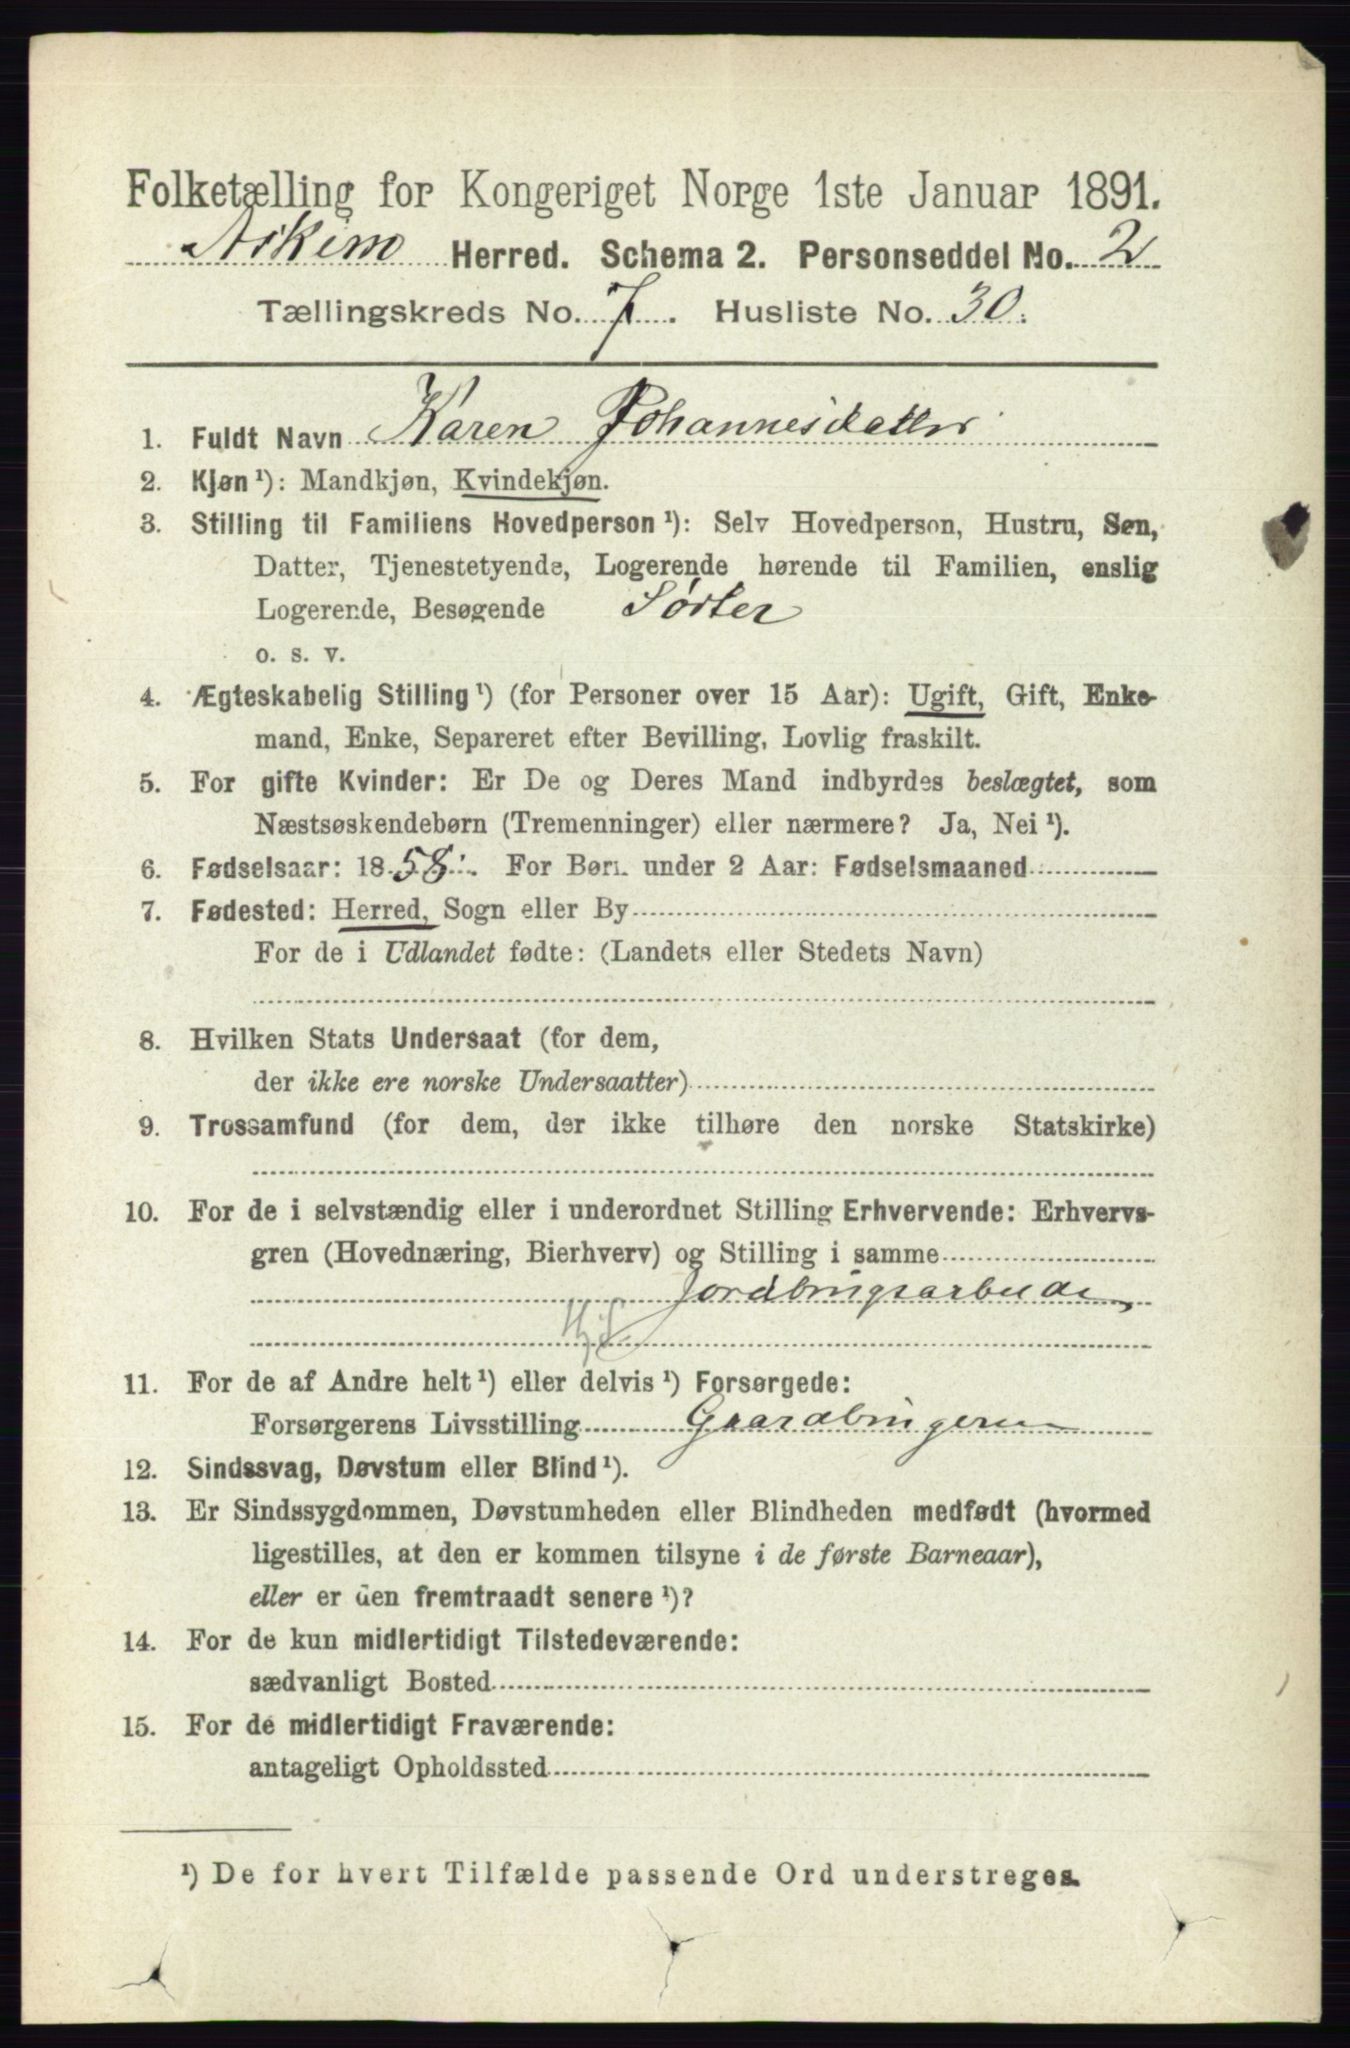 Folketælling for Kongeriget Norge 1ste Januar 1891.
Askim Herred. Schema 2. Personseddel No. 2
Tællingskreds No. 7. Husliste No. 30.
1. Fuldt Navn Karen Johannesdatter
2. Kjøn ¹): Mandkjøn, Kvindekjøn.
3. Stilling til Familiens Hovedperson ¹): Selv Hovedperson, Hustru, Søn,
Datter, Tjenestetyende, Logerende hørende til Familien, enslig
Logerende, Besøgende Søster
o. s. v.
4. Ægteskabelig Stilling ¹) (for Personer over 15 Aar): Ugift, Gift, Enke-
mand, Enke, Separeret efter Bevilling, Lovlig fraskilt.
5. For gifte Kvinder: Er De og Deres Mand indbyrdes beslægtet, som
Næstsøskendebørn (Tremenninger) eller nærmere? Ja, Nei ¹).
6. Fødselsaar: 1858. For Børn under 2 Aar: Fødselsmaaned
7. Fødested: Herred, Sogn eller By
For de i Udlandet fødte: (Landets eller Stedets Navn)
8. Hvilken Stats Undersaat (for dem,
der ikke ere norske Undersaatter)
9. Trossamfund (for dem, der ikke tilhøre den norske Statskirke)
10. For de i selvstændig eller i underordnet Stilling Erhvervende: Erhvervs-
gren (Hovednæring, Bierhverv) og Stilling i samme
Jordbrugsarbeide
11. For de af Andre helt ¹) eller delvis ¹) Forsørgede:
Forsørgerens Livsstilling Gaardbrugeren
12. Sindssvag, Døvstum eller Blind ¹).
13. Er Sindssygdommen, Døvstumheden eller Blindheden medfødt (hvormed
ligestilles, at den er kommen tilsyne i de første Barneaar),
eller er den fremtraadt senere ¹)?
14. For de kun midlertidigt Tilstedeværende:
sædvanligt Bosted
15. For de midlertidigt Fraværende:
antageligt Opholdssted
¹) De for hvert Tilfælde passende Ord understreges.